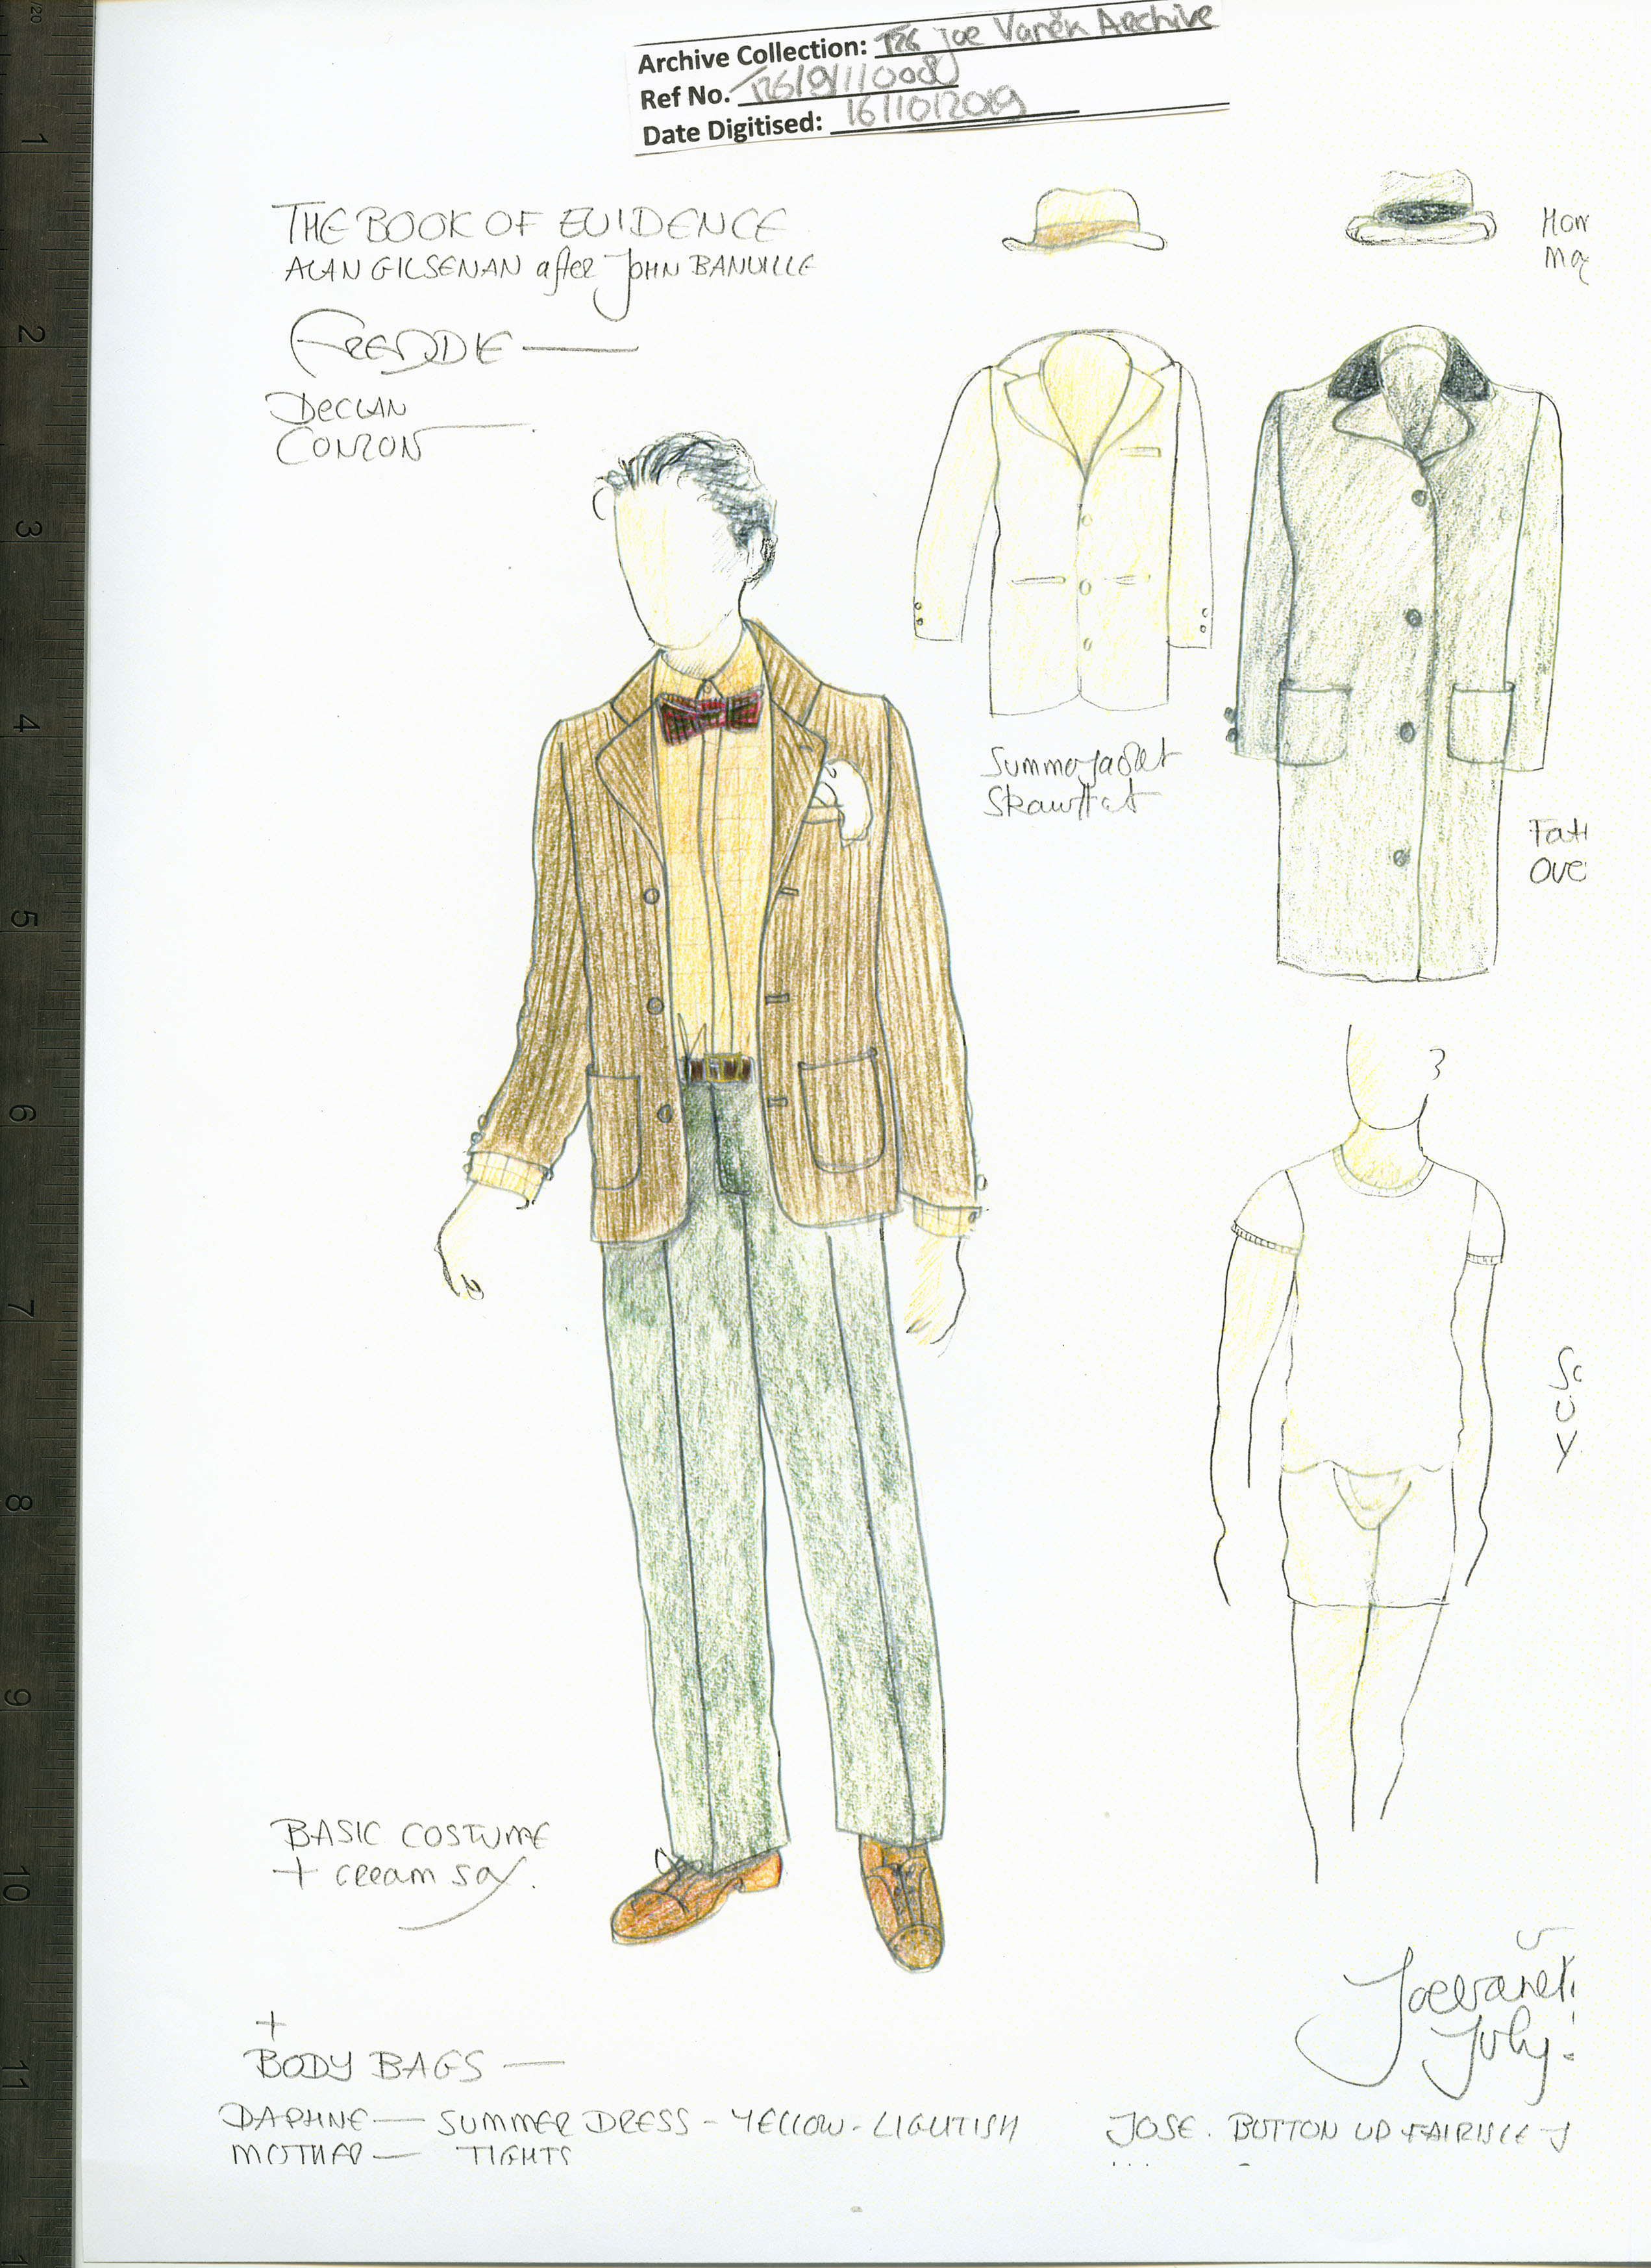 Archive Collection: T26 Joe Vaněk Archive
Ref No. T26/9/1/008
Date Digitised: 16/10/2019
THE BOOK OF EVIDENCE
ALAN GILSENAN after JOHN BANVILLE
FREDDIE —
DECLAN
CONLON
Summer Jacket
Straw Hat
BASIC COSTUME
+
BODY BAGS —
DAPHNE — SUMMER DRESS - YELLOW - LIGHTISH
MOTHER — TIGHTS
JOSE. BUTTON UP FAIRISLE
Joe Vaněk
July
1
2
3
4
5
6
7
8
9
10
11